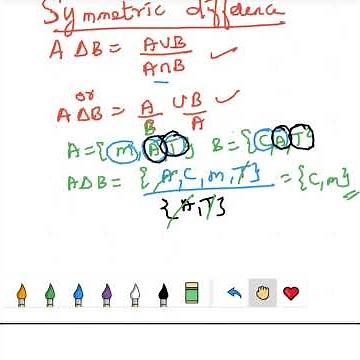 Symmetric diffdence
A Δ B = A∪B / A∩B
or
A Δ B = A/B ∪ B/A
A = {m, A, T} B = {C, A, T}
A Δ B = {A, C, m, T} / {A, T} = {C, m}